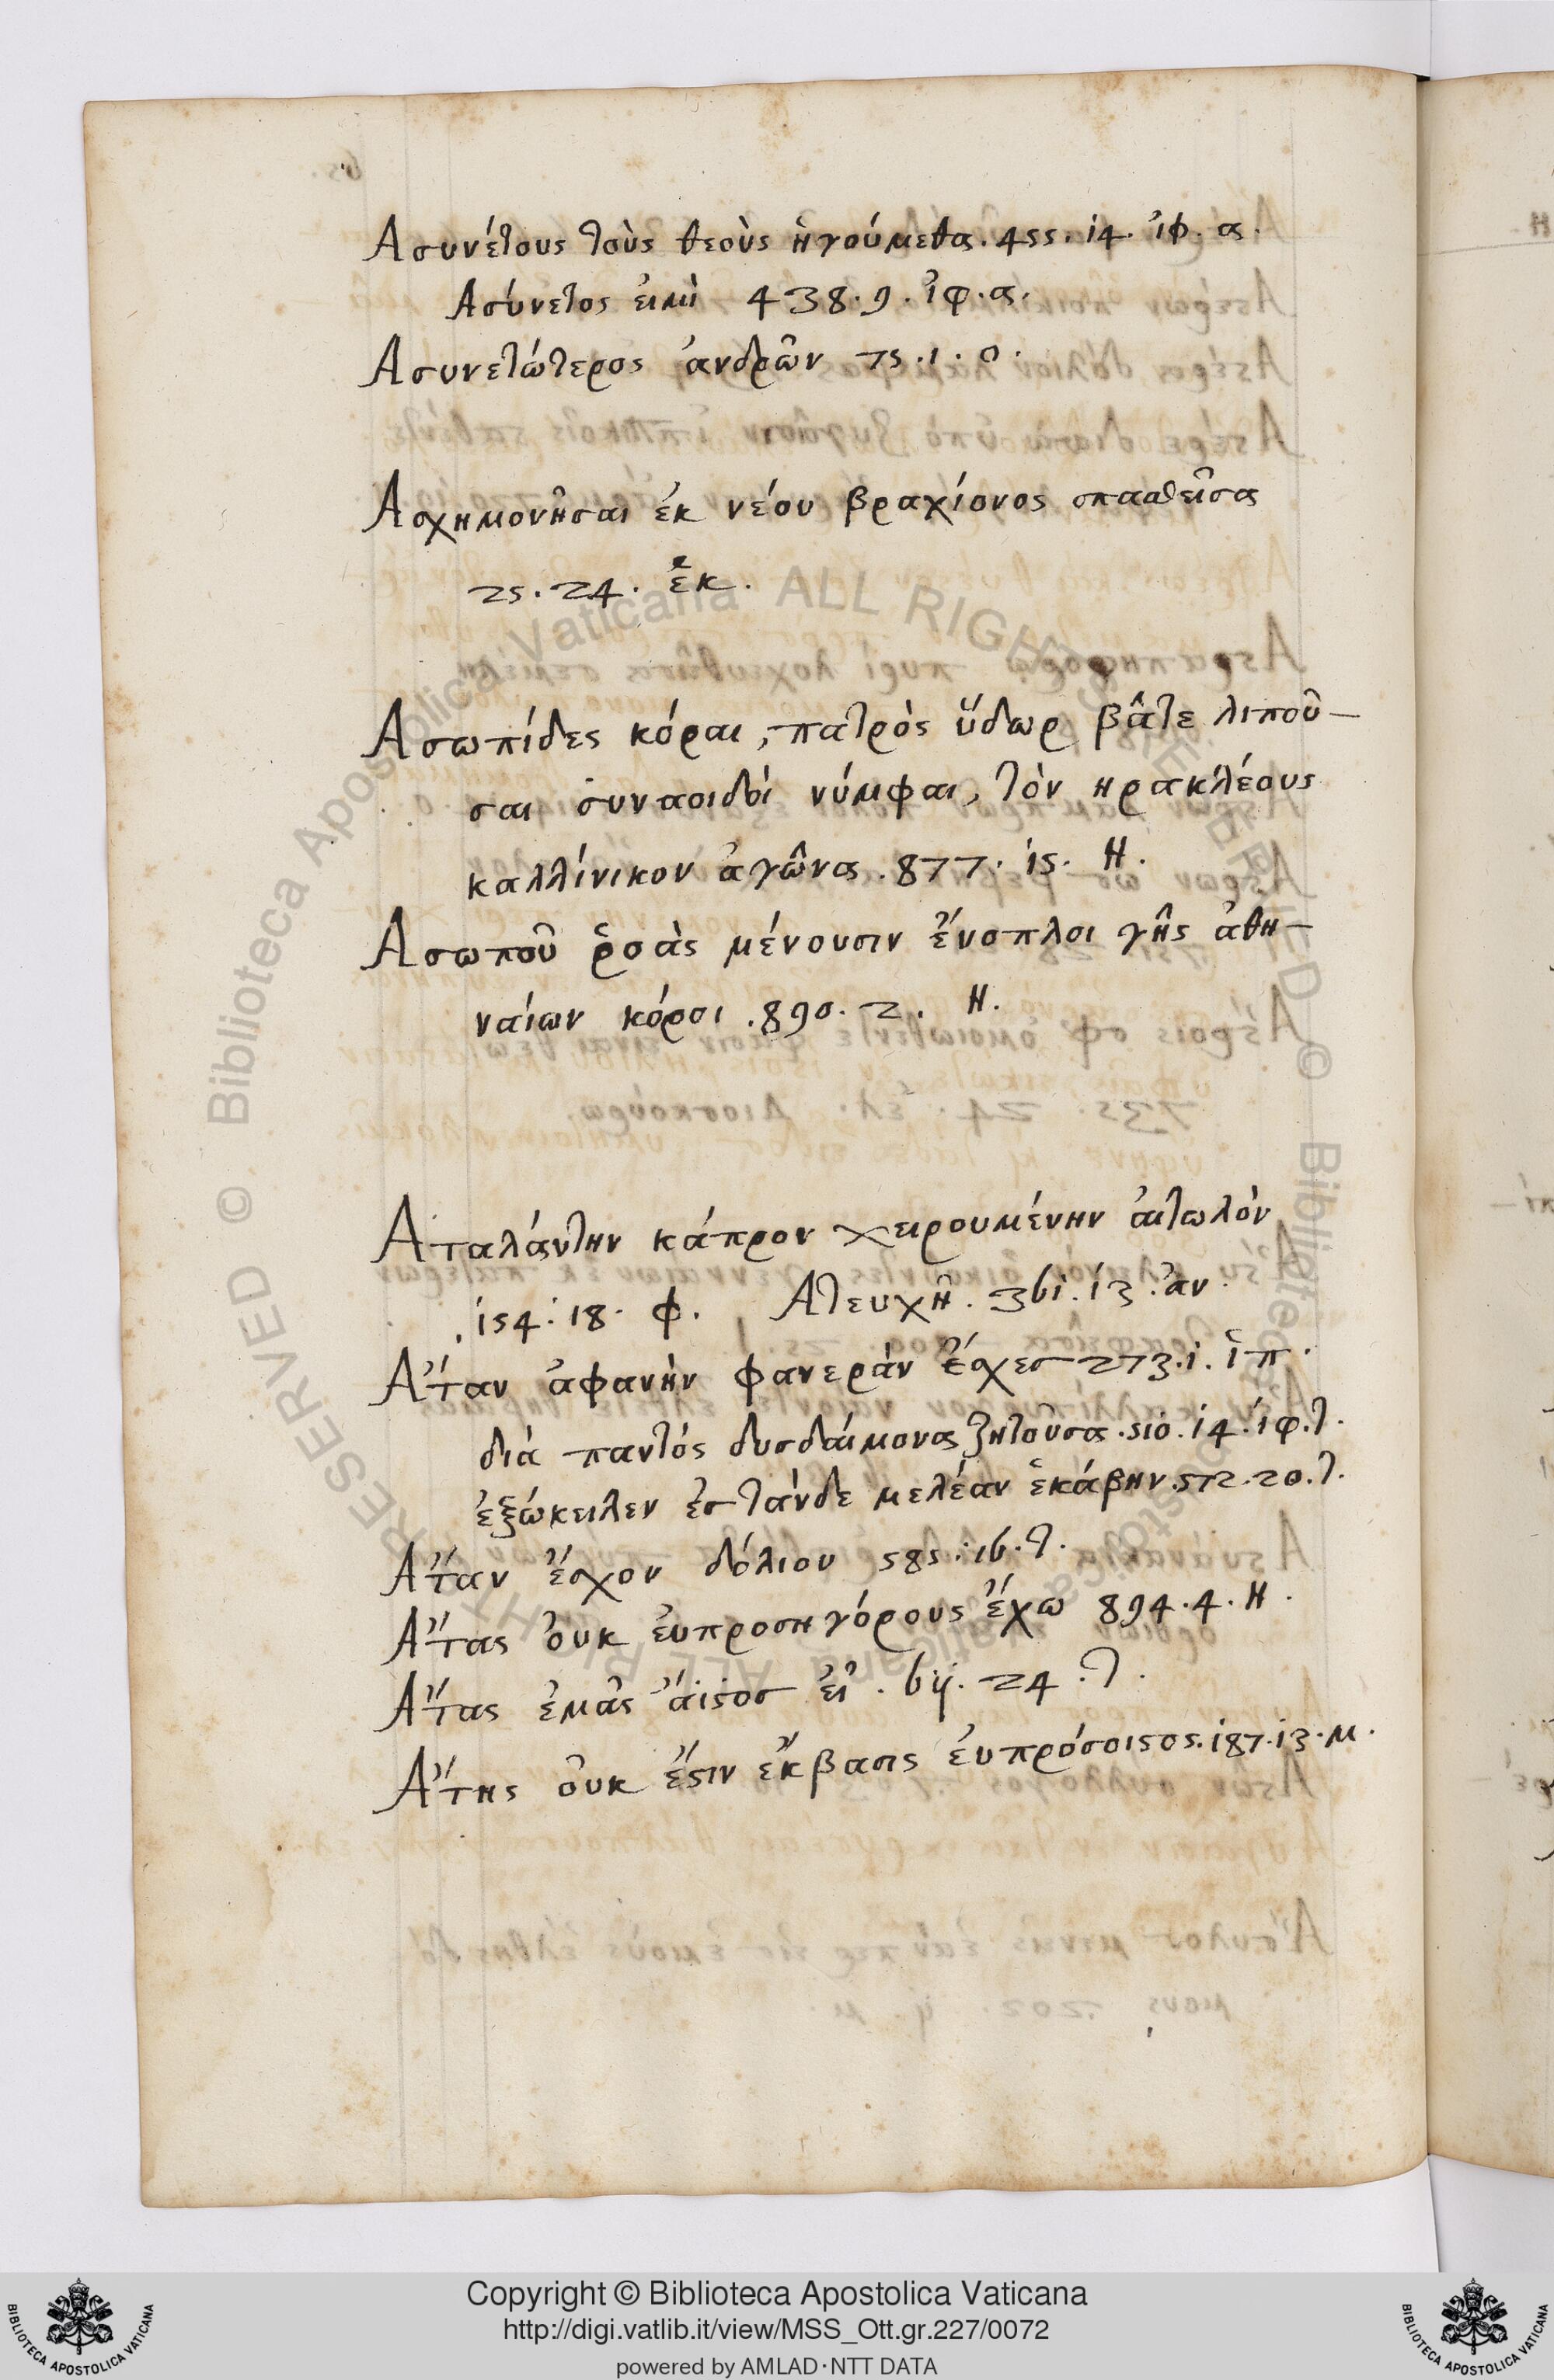 Ασυνέτους τοὺς θεοὺς ἡγούμεθα. 455. 14. ἰφ. α.
Ασύνετος ἐιμὶ 438. 9. ἰφ. α.
Ασυνετώτερος ἀνδρῶν 75. 1. ο.
Ασχημονῆσαι ἐκ νέου βραχίονος σπασθεῖσα
25. 24. ἑκ.
Ασωπίδες κόραι, πατρὸς ὕδωρ βᾶτε λιποῦ-
σαι συναοιδοί νύμφαι, τὸν ηρακλέους
καλλίνικον ἀγῶνα. 877. 15. Η.
Ασωποῦ ῥοὰς μένουσιν ἔνοπλοι γῆς ἀθη-
ναίων κόροι. 890. 2. Η.
Αταλάντην κάπρον χειρουμένην ἀιτωλὸν
154. 18. φ. Ατευχῆ. 361. 13. ἀν.
Ἄταν ἀφανὴν φανερὰν ἔσχεσ 273. 1. ἱπ.
διὰ παντός δυσδαίμονα ζητοῦσα. 510. 14. ἰφ. τ.
ἐξώκειλεν ἐς τάνδε μελέαν ἑκάβην. 572. 20. τ.
Ἄταν ἔσχον δόλιον 585. 16. τ.
Ἄτας ὀυκ ἐυπροσηγόρους ἔχω 894. 4. Η.
Ἄτας ἐμᾶς ἄϊστος ἐῖ. 611. 24. τ.
Ἄτης ὀυκ ἔστιν ἔκβασις ἐυπρόσοιστος. 187. 13. μ.
Copyright © Biblioteca Apostolica Vaticana
http://digi.vatlib.it/view/MSS_Ott.gr.227/0072
powered by AMLAD·NTT DATA
BIBLIOTECA APOSTOLICA VATICANA
BIBLIOTECA APOSTOLICA VATICANA
Biblioteca Apostolica Vaticana ALL RIGHTS RESERVED ©